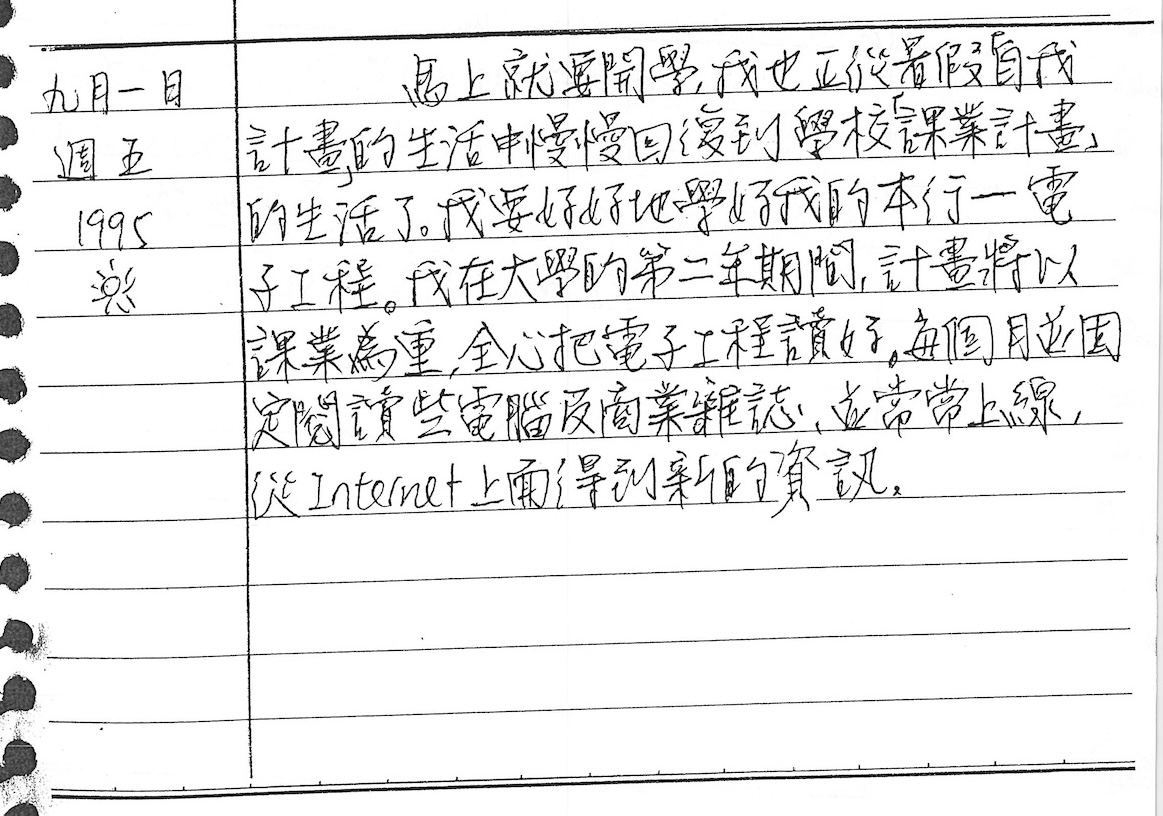 九月一日
週五
1995
馬上就要開學,我也正從暑假「自我
計畫」的生活中慢慢回復到學校「課業計畫」
的生活了。我要好好地學好我的本行—電
子工程。我在大學的第二年期間,計畫將以
課業為重,全心把電子工程讀好。每個月並固
定閱讀些電腦及商業雜誌,並常常上線,
從Internet上面得到新的資訊。